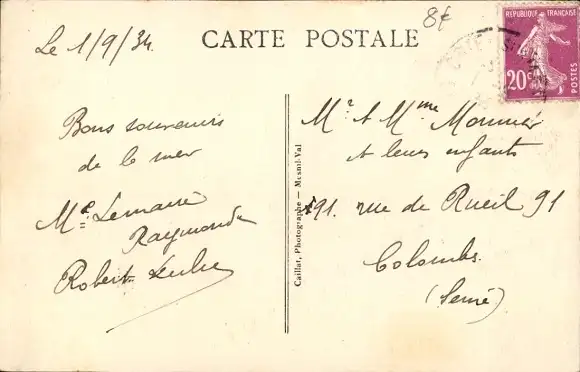 Le 1/9/34
CARTE POSTALE
8€
RÉPUBLIQUE FRANÇAISE
20c
POSTES
Bons souvenirs
de la mer
Me Lemaire
Raymonde
Robert
Caillat, Photographe — Mesnil-Val
Mr & Mme Monnier
& leurs enfants
91. rue de Rueil 91
Colombes
(Seine)